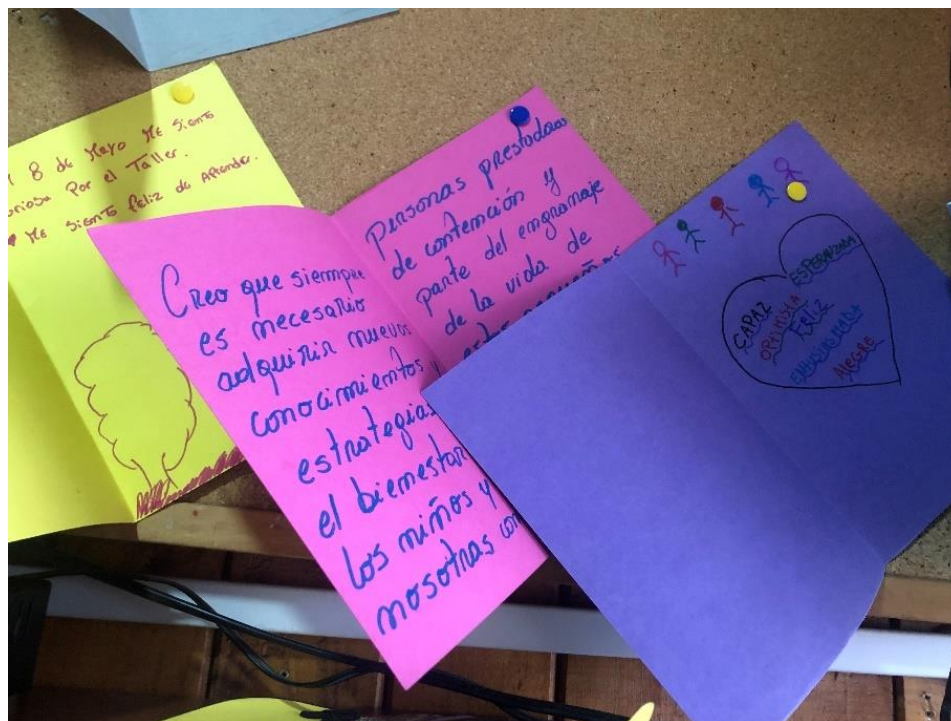 8 de Mayo Me Siento
Por el Taller.
Me Siento feliz de Aprender.
Creo que siempre
es necesario
adquirir nuevos
conocimientos y
estrategias
el bienestar
los niños y
nosotras com
Personas prestadoras
de contención y
parte del engranaje
de la vida de
estos pequeños
CAPAZ
ESPERANZADA
OPTIMISTA
FELIZ
ENTUSIASMADA
ALEGRE